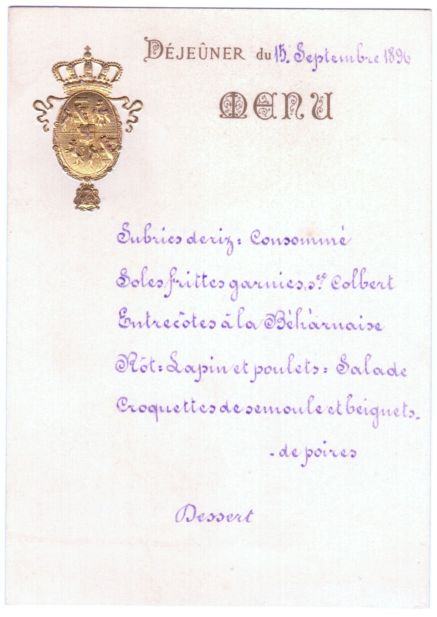 DÉJEÛNER du 15 Septembre 1896
MENU
Subries de riz = Consommé
Soles frittes garnies, sce Colbert
Entrecôtes à la Béhàrnaise
Rôt = Lapin et poulets = Salade
Croquettes de semoule et beignets-
- de poires
Dessert